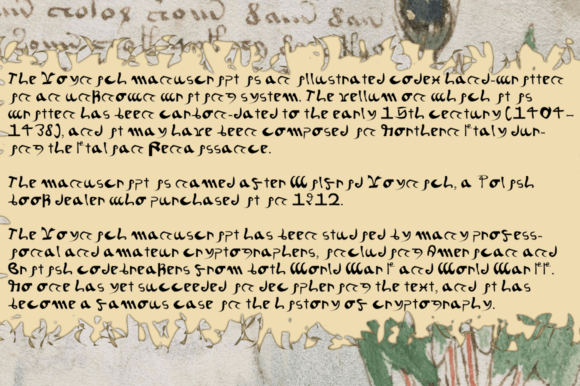 The Voynich manuscript is an illustrated codex hand-written
in an unknown writing system. The vellum on which it is
written has been carbon-dated to the early 15th century (1404–
1438), and it may have been composed in Northern Italy dur-
ing the Italian Renaissance.
The manuscript is named after Wilfrid Voynich, a Polish
book dealer who purchased it in 1912.
The Voynich manuscript has been studied by many profess-
ional and amateur cryptographers, including American and
British codebreakers from both World War I and World War II.
No one has yet succeeded in deciphering the text, and it has
become a famous case in the history of cryptography.